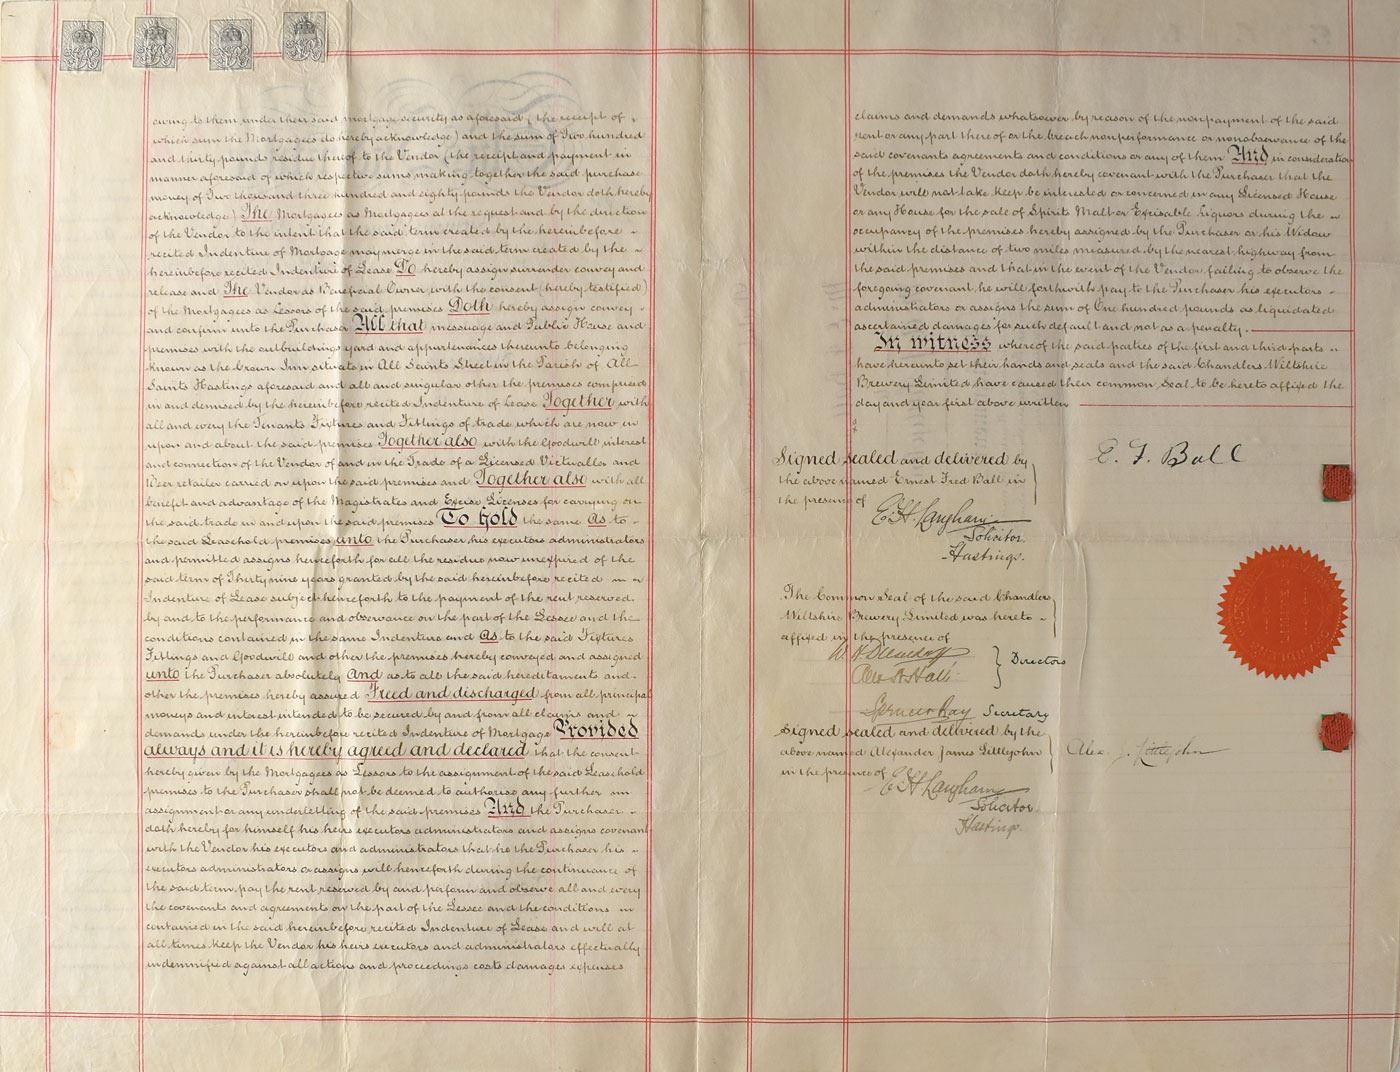 owing to them under their said mortgage security as aforesaid (the receipt of
which sum the Mortgagees do hereby acknowledge) and the sum of Two hundred
and thirty pounds residue thereof to the Vendor (the receipt and payment in
manner aforesaid of which respective sums making together the said purchase
money of Two thousand three hundred and eighty pounds the Vendor doth hereby
acknowledge) The Mortgagees as Mortgagees at the request and by the direction
of the Vendor to the intent that the said term created by the hereinbefore
recited Indenture of Mortgage may merge in the said term created by the
hereinbefore recited Indenture of Lease Do hereby assign surrender convey and
release and The Vendor as Beneficial Owner with the consent (hereby testified)
of the Mortgagees as Lessors of the said premises Doth hereby assign convey
and confirm unto the Purchaser All that messuage and Public House and
premises with the outbuildings yard and appurtenances thereunto belonging
known as the Crown Inn situate in All Saints Street in the Parish of All
Saints Hastings aforesaid and all and singular other the premises comprised
in and demised by the hereinbefore recited Indenture of Lease Together with
all and every the Tenants Fixtures and Fittings of trade which are now in
upon and about the said premises Together also with the Goodwill interest
and connection of the Vendor of and in the Trade of a Licensed Victualler and
Beer retailer carried on upon the said premises and Together also with all
benefit and advantage of the Magistrates and Excise Licenses for carrying on
the said trade in and upon the said premises To hold the same As to
the said Leasehold premises unto the Purchaser his executors administrators
and permitted assigns henceforth for all the residue now unexpired of the
said term of Thirty nine years granted by the said hereinbefore recited
Indenture of Lease subject henceforth to the payment of the rent reserved
by and to the performance and observance on the part of the Lessee and the
conditions contained in the same Indenture and As to the said Fixtures
Fittings and Goodwill and other the premises hereby conveyed and assigned
unto the Purchaser absolutely And as to all the said hereditaments and
other the premises hereby assured Freed and discharged from all principal
moneys and interest intended to be secured by and from all claims and
demands under the hereinbefore recited Indenture of Mortgage Provided
always and it is hereby agreed and declared that the consent
hereby given by the Mortgagees as Lessors to the assignment of the said Leasehold
premises to the Purchaser shall not be deemed to authorise any further
assignment or any underletting of the said premises And the Purchaser
doth hereby for himself his heirs executors administrators and assigns covenant
with the Vendor his executors and administrators that he the Purchaser his
executors administrators or assigns will henceforth during the continuance of
the said term pay the rent reserved by and perform and observe all and every
the covenants and agreements on the part of the Lessee and the conditions
contained in the said hereinbefore recited Indenture of Lease and will at
all times keep the Vendor his heirs executors and administrators effectually
indemnified against all actions and proceedings costs damages expenses
claims and demands whatsoever by reason of the nonpayment of the said
rent or any part thereof or the breach nonperformance or nonobservance of the
said covenants agreements and conditions or any of them And in consideration
of the premises the Vendor doth hereby covenant with the Purchaser that the
Vendor will not take keep be interested or concerned in any Licensed House
or any House for the sale of Spirits Malt or Excisable Liquors during the
occupancy of the premises hereby assigned by the Purchaser or his Widow
within the distance of two miles measured by the nearest highway from
the said premises and that in the event of the Vendor failing to observe the
foregoing covenant he will forthwith pay to the Purchaser his executors
administrators or assigns the sum of One hundred pounds as liquidated
ascertained damages for such default and not as a penalty.
In witness whereof the said parties of the first and third parts
have hereunto set their hands and seals and the said Chandlers Wiltshire
Brewery Limited have caused their common Seal to be hereto affixed the
day and year first above written
Signed sealed and delivered by
the above named Ernest Fred Ball in
the presence of
E. F. Ball
E. H. Langham
Solicitor.
Hastings.
The Common Seal of the said Chandlers
Wiltshire Brewery Limited was hereto
affixed in the presence of
Directors
Spencer Kay Secretary
Signed sealed and delivered by the
above named Alexander James Littlejohn
in the presence of
Alex. J. Littlejohn
E. H. Langham
Solicitor
Hastings.